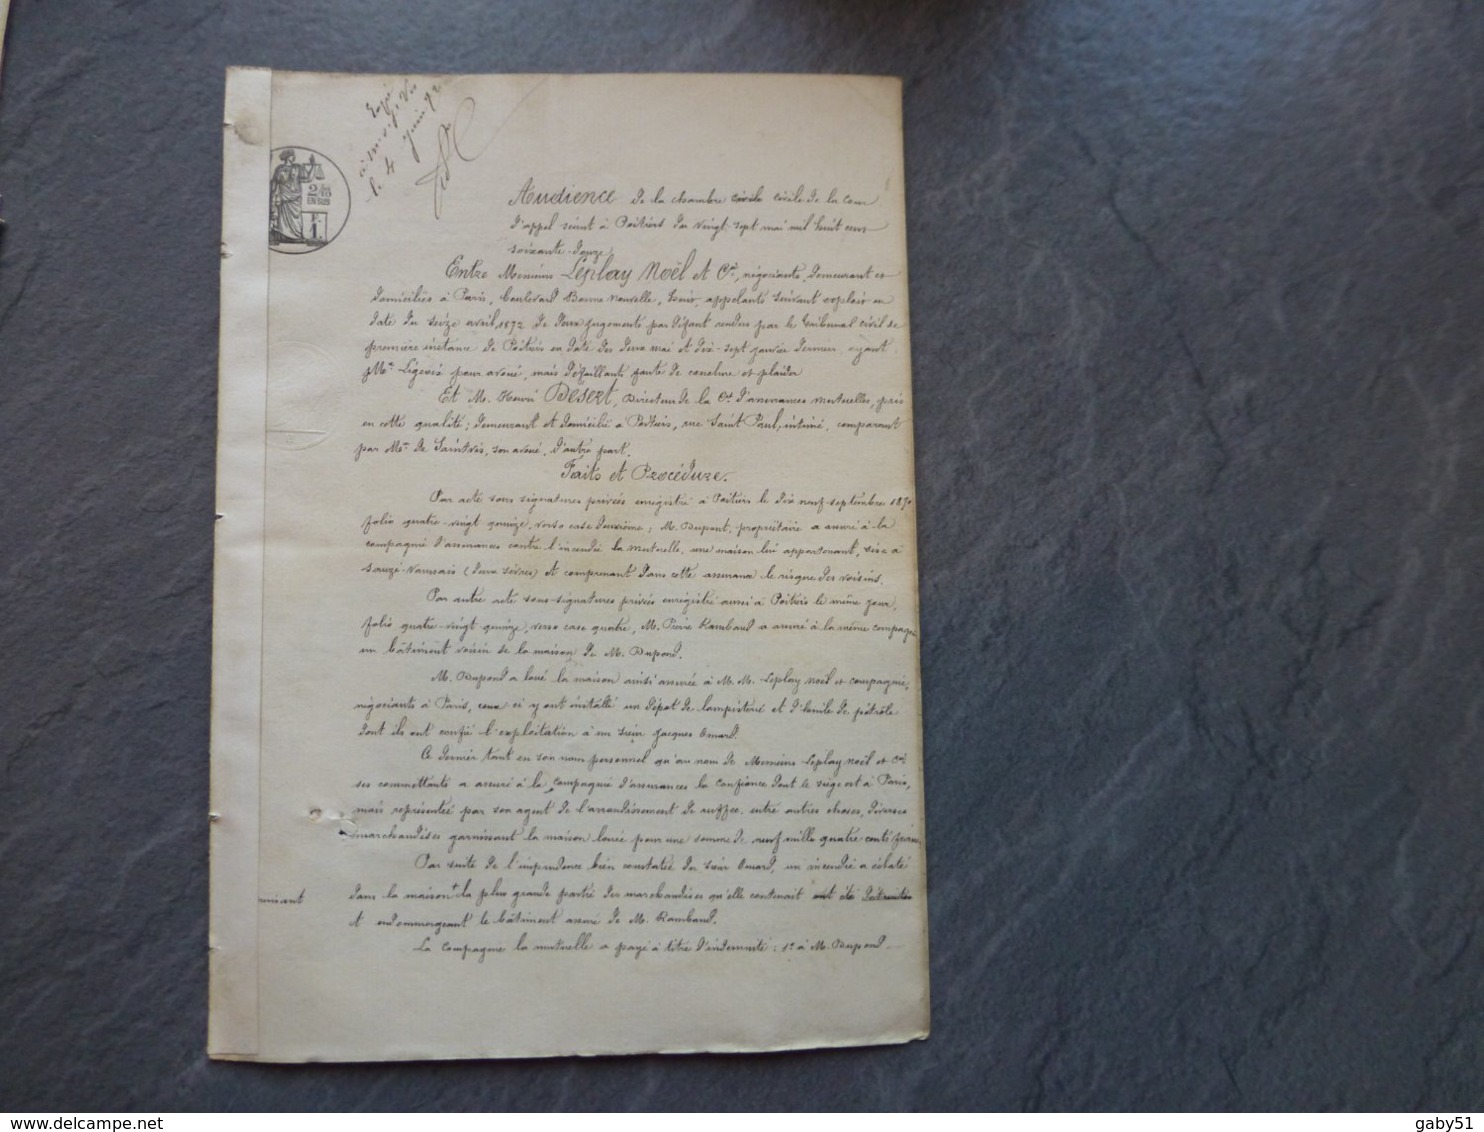 Taxé
le 4 Juin 72
2/10
EN SUS
F.
1.
Audience de la chambre civile civile de la Cour
d'appel séant à Poitiers du vingt-sept mai mil huit cent
soixante-douze
Entre Messieurs Leplay Noël et Cie, négociants, demeurant et
domiciliés à Paris, boulevard Bonne Nouvelle, appelants suivant exploit en
date du seize avril 1872 de deux jugements par défaut rendus par le tribunal civil de
première instance de Poitiers en date des deux mai et dix-sept janvier dernier ayant
Me pour avoué, mais défaillants faute de conclure et plaider
Et M. Henri Desert, Directeur de la Cie d'assurances mutuelles, pris
en cette qualité; demeurant et domicilié à Poitiers, rue Saint Paul, intimé, comparant
par Me de Saintvis, son avoué, d'autre part.
Faits et Procédure.
Par acte sous signatures privées enregistré à Poitiers le dix neuf septembre 1870
folio quatre-vingt quinze, verso case deuxième; M. Dupont, propriétaire a assuré à la
compagnie d'assurances contre l'incendie la mutuelle, une maison lui appartenant, sise à
Sauzé-Vaussais (Deux Sèvres) et comprenant dans cette assurance le risque des voisins.
Par autre acte sous-signatures privées enregistré aussi à Poitiers le même jour,
folio quatre-vingt quinze, verso case quatre, M. Pierre Rambaud a assuré à la même compagnie
un bâtiment voisin de la maison de M. Dupond.
M. Dupond a loué la maison ainsi assurée à M. M. Leplay Noël et compagnie,
négociants à Paris, ceux ci y ont installé un dépôt de lampisterie et d'huile de pétrole
dont ils ont confié l'exploitation à un sieur Jacques Omard.
Ce dernier tant en son nom personnel qu'au nom de Messieurs Leplay Noël et Cie
ses commettants a assuré à la compagnie d'assurances la confiance dont le siège est à Paris,
mais représentée par son agent de l'arrondissement de Ruffec, entre autres choses, diverses
marchandises garnissant la maison louée pour une somme de neuf mille quatre cents francs
Par suite de l'imprudence bien constatée du sieur Omard, un incendie a éclaté
dans la maison la plus grande partie des marchandises qu'elle contenait ont été détruites
et endommageant le bâtiment assuré de M. Rambaud.
La compagnie la mutuelle a payé à titre d'indemnité: 1° à M. Dupond.
gaby51